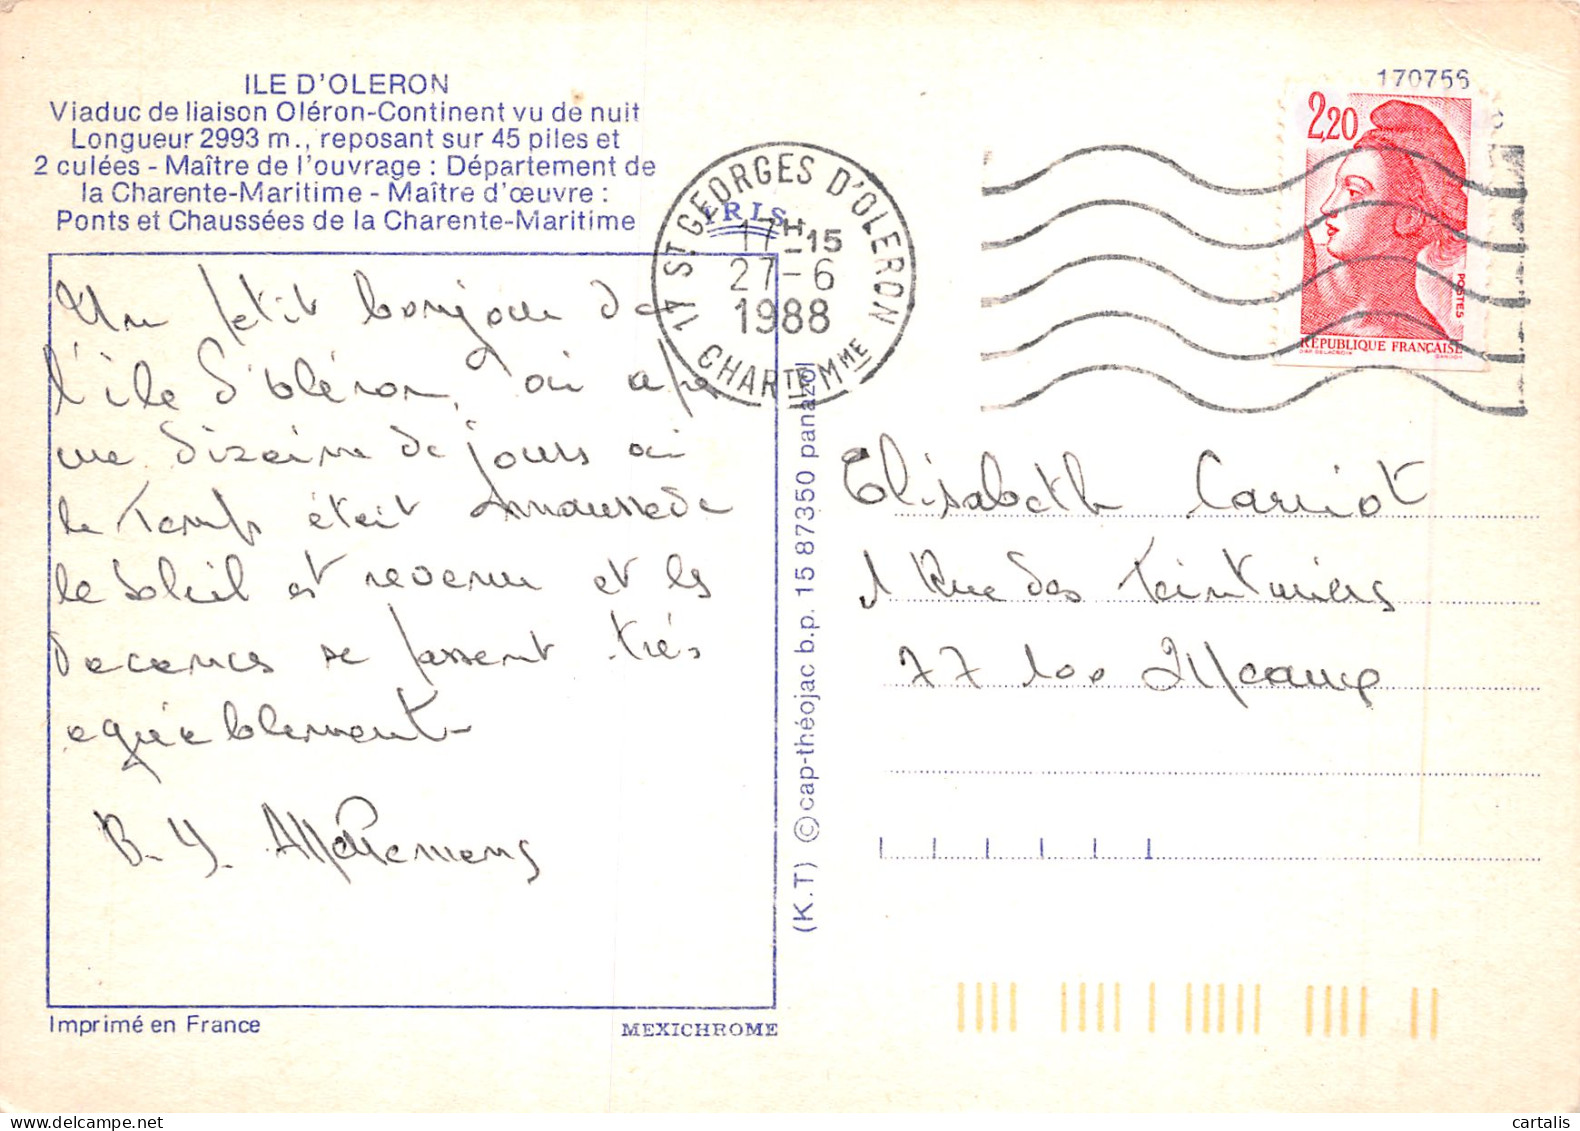 ILE D'OLERON
Viaduc de liaison Oléron-Continent vu de nuit
Longueur 2993 m., reposant sur 45 piles et
2 culées - Maître de l'ouvrage : Département de
la Charente-Maritime - Maître d'œuvre :
Ponts et Chaussées de la Charente-Maritime
IRIS
17 ST GEORGES D'OLERON
17H-15
27-6
1988
CHARTE MME
170756
2,20
POSTES
RÉPUBLIQUE FRANÇAISE
Un petit bonjour de
l'ile d'oléron, où
une dizaine de jours où
le temps était maussade
le soleil est revenu et les
vacances se passent très
agréablement
B. Y.
Elisabeth Carriot
1 Rue des Teinturiers
77 100 Meaux
(K.T) © cap-théojac b.p. 15 87350 panazol
Imprimé en France
MEXICHROME
cartalis